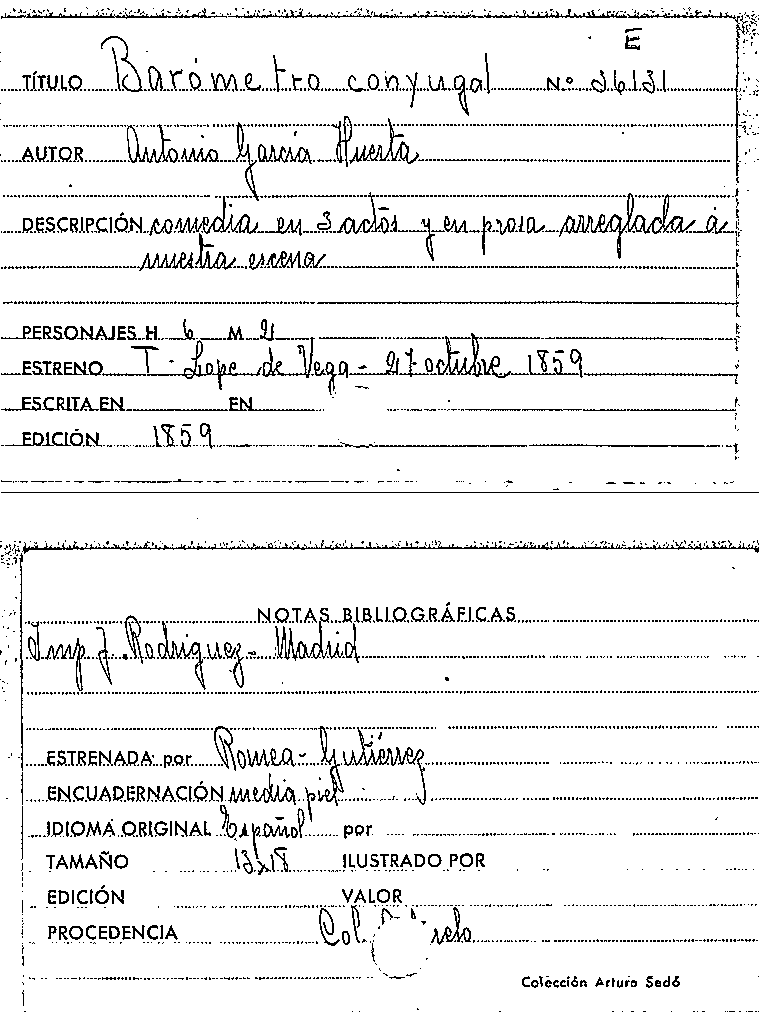 E
TÍTULO Barómetro conyugal Nº 36131
AUTOR Antonio García Huerta
DESCRIPCIÓN comedia en 3 actos y en prosa arreglada á
nuestra escena
PERSONAJES H 6 M 2
ESTRENO T. Lope de Vega - 27 octubre 1859
ESCRITA EN EN
EDICIÓN 1859
NOTAS BIBLIOGRÁFICAS
Imp J. Rodriguez - Madrid
ESTRENADA por Romea - Gutiérrez
ENCUADERNACIÓN media piel
IDIOMA ORIGINAL Español por
TAMAÑO 13x18 ILUSTRADO POR
EDICIÓN VALOR
PROCEDENCIA Col.
Colección Arturo Sedó